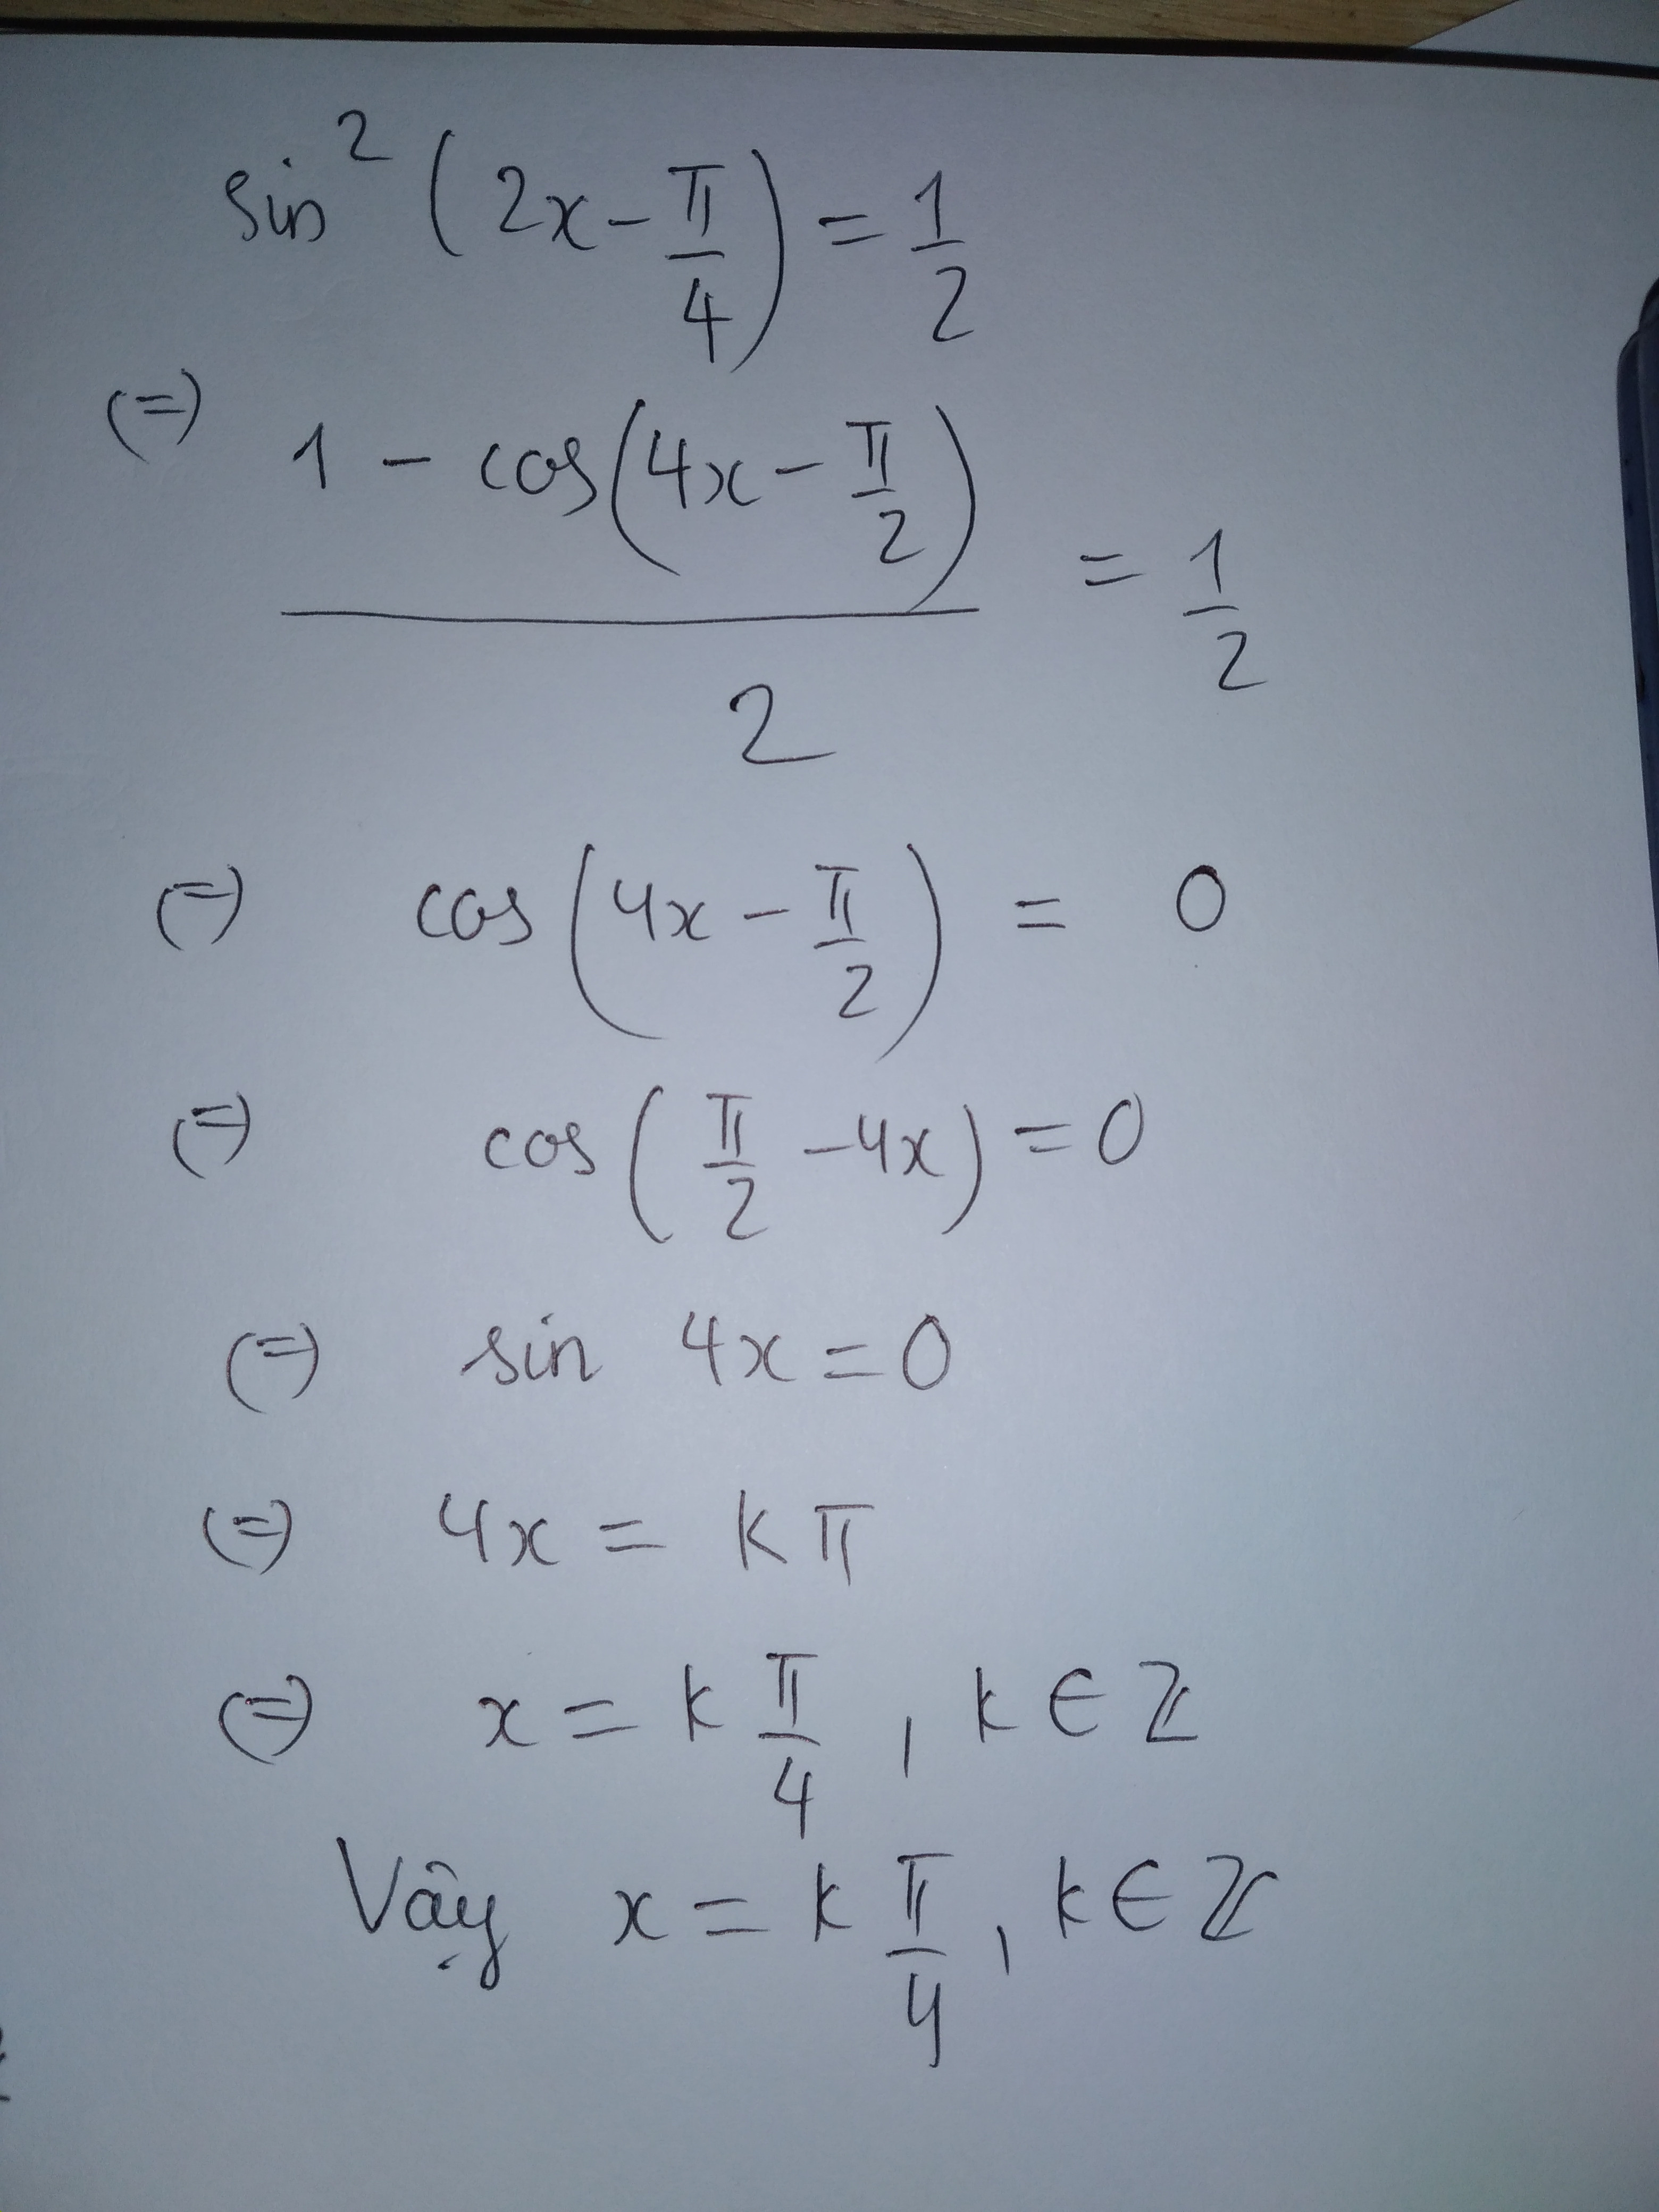 sin² (2x - π/4) = 1/2
(=) (1 - cos(4x - π/2))/2 = 1/2
(=) cos(4x - π/2) = 0
(=) cos(π/2 - 4x) = 0
(=) sin 4x = 0
(=) 4x = kπ
(=) x = k π/4 , k ∈ ℤ
Vậy x = k π/4 , k ∈ ℤ